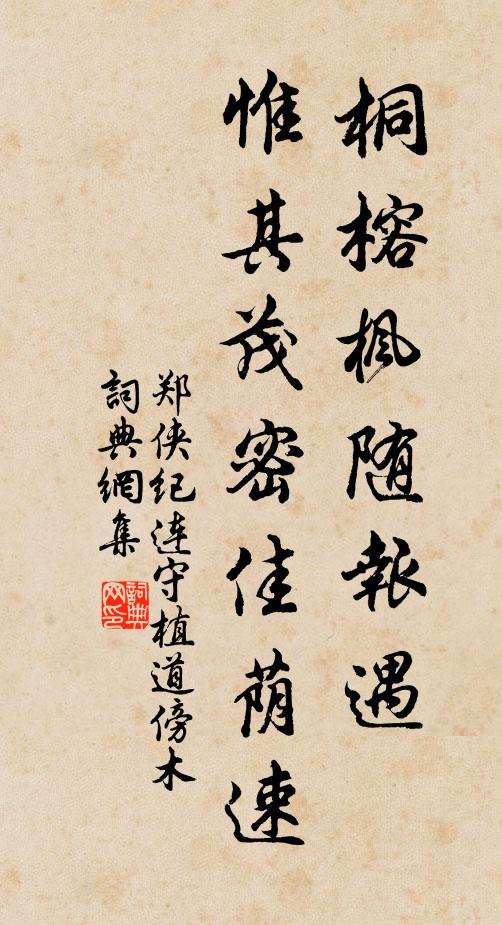 桐榕枫随報遇
惟其茂密佳荫速
郑侠纪连守植道傍木
詞典網集
詞典网印